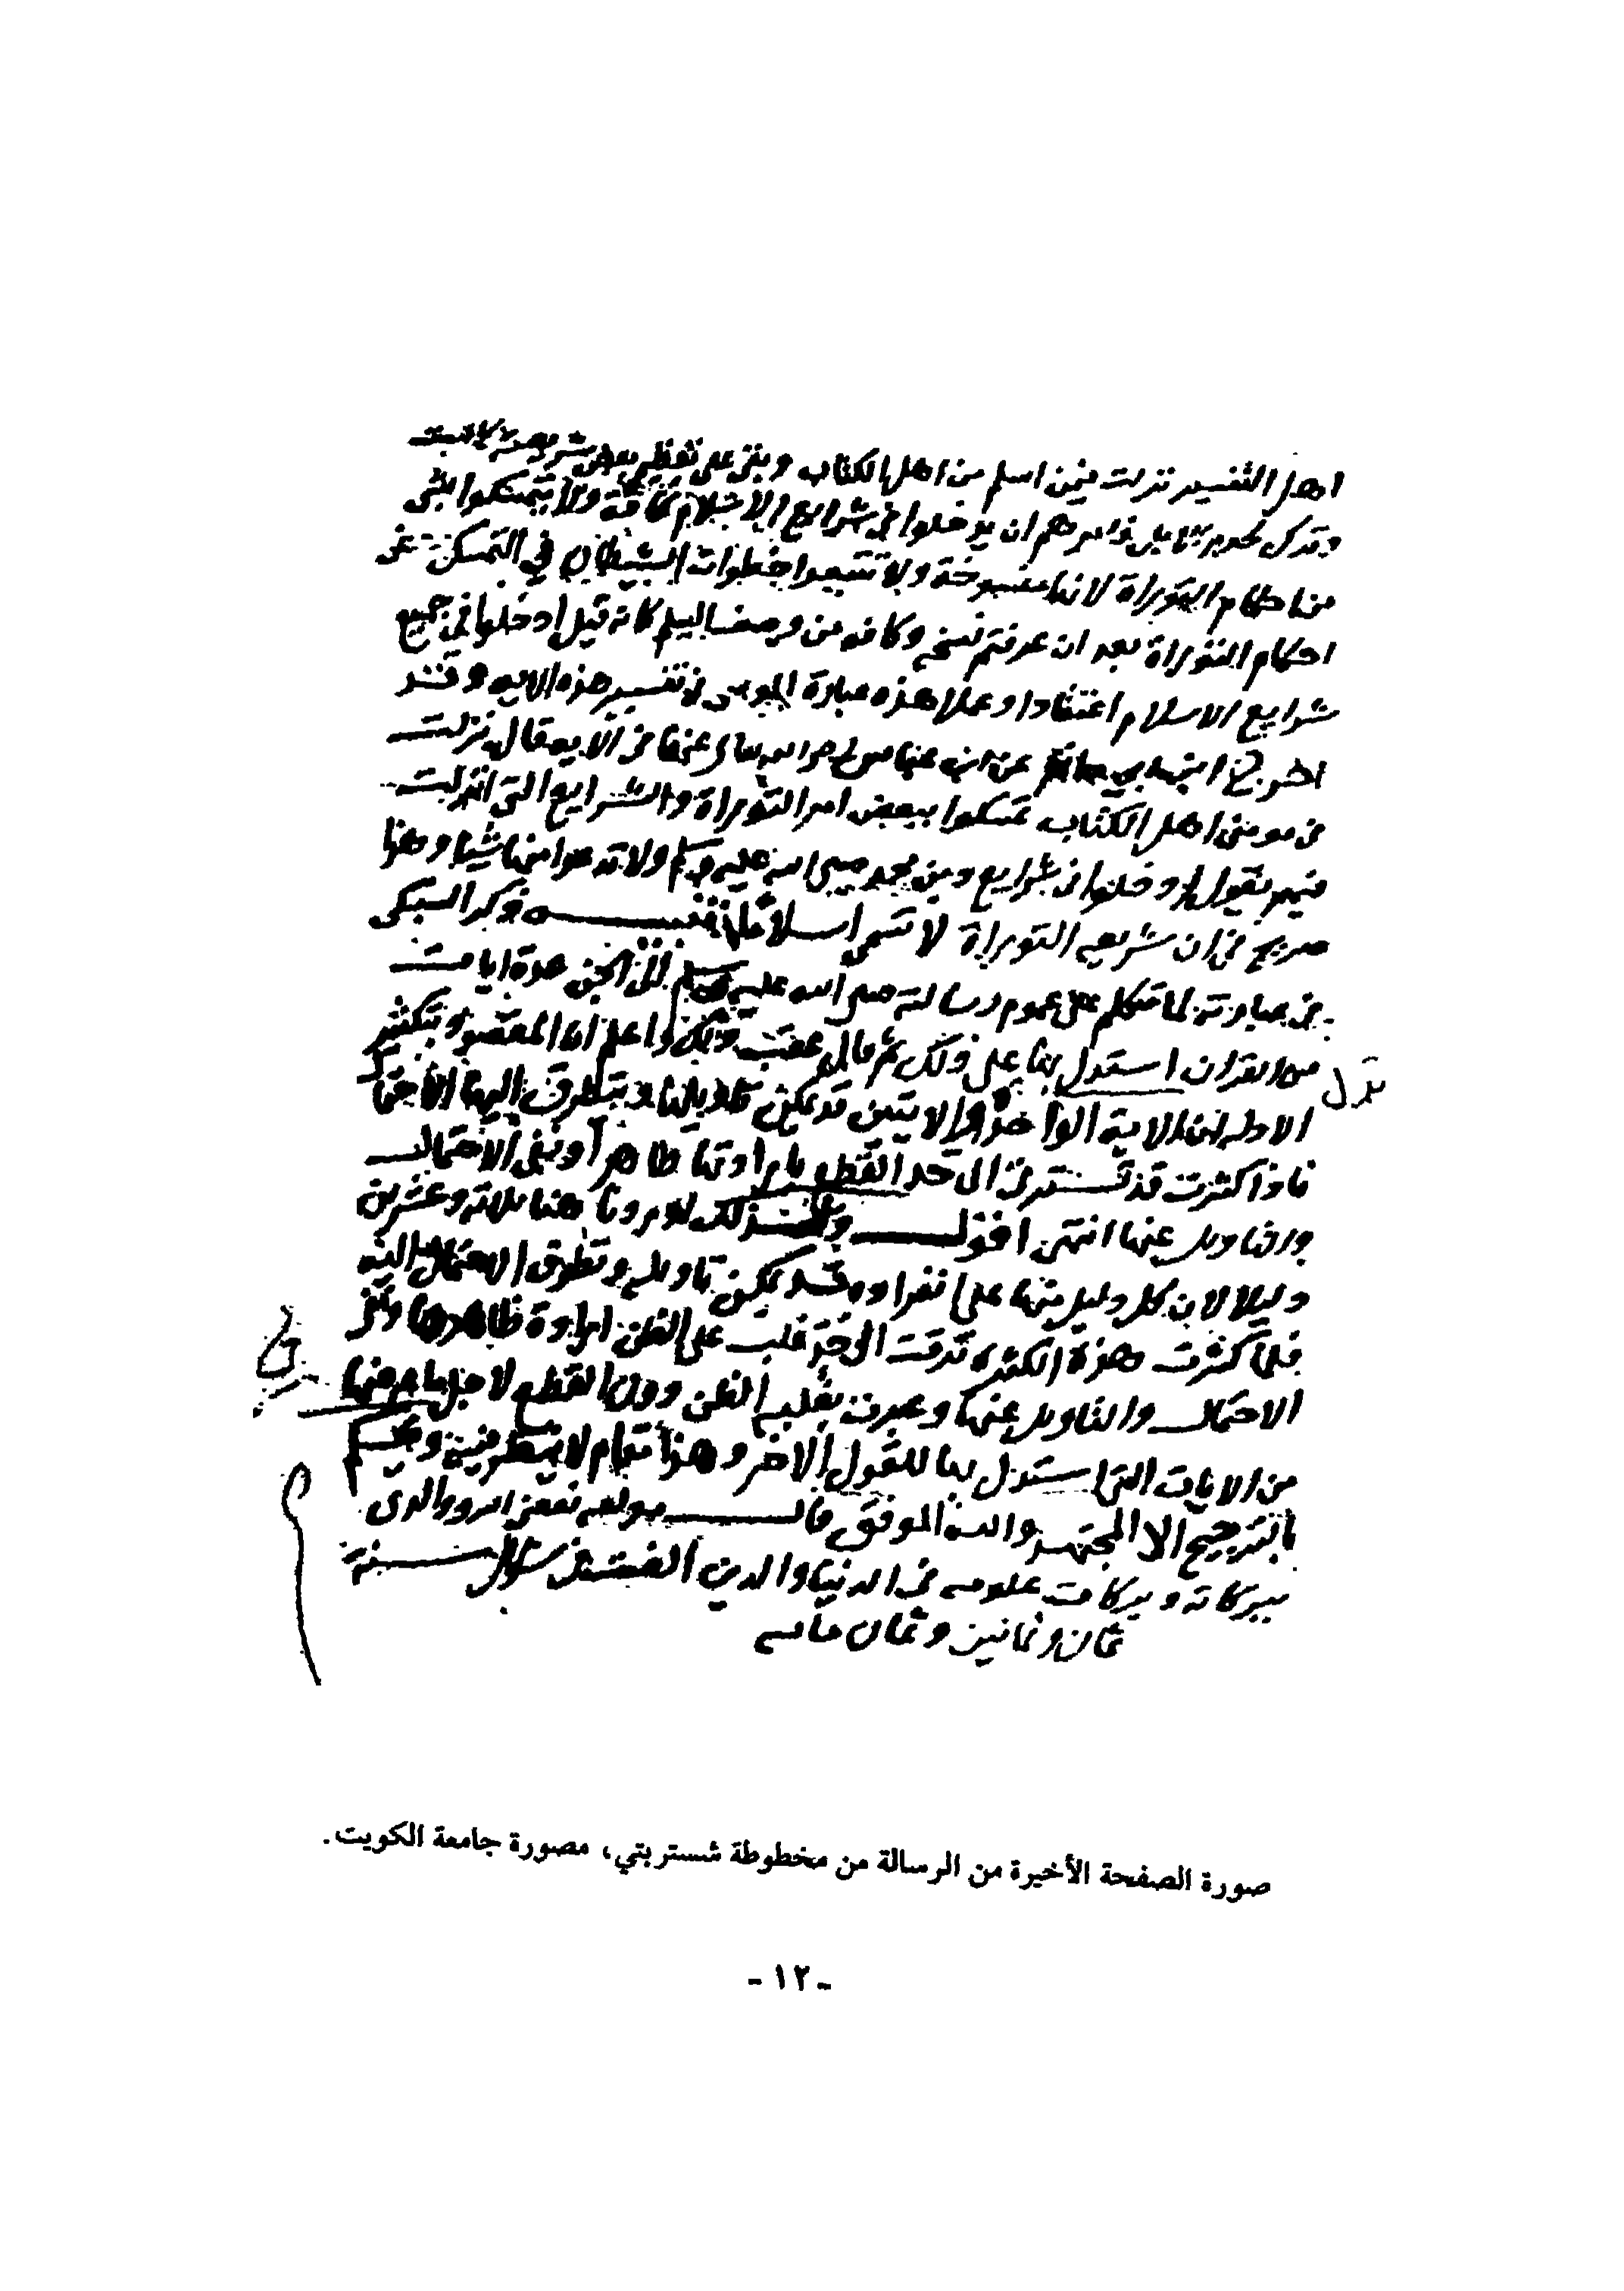 اهل التفسير نزلت فيمن اسلم من اهل الكتاب وبقى على تعظيم بعض شريعته كالسبت
وترك لحوم الابل فامرهم ان يدخلوا في شرايع الاسلام كافة ولا يتمسكوا بشى
من احكام التوراة لانها منسوخة ولا تتبعوا خطوات الشيطان في التمسك
احكام التوراة بعد ان عرفتم نسخه وكافه من وصف السلم كانه قيل ادخلوا في جميع
شرايع الاسلام اعتقادا وعملا هذه عبارة المرسى في تفسير هذه الايه وقد
اخرج ابن ابي حاتم عن ابن عباس رضى الله تعالى عنهما في الايه قال نزلت
في مومنى اهل الكتاب تمسكوا ببعض امر التوراة والشرايع التي انزلت
فيهم يقول ادخلوا في شرايع دين محمد صلى الله عليه وسلم ولا تدعوا منها شيا وهذا
صريح في ان شريعه التوراة لا تسمى اسلاما تنبيه ذكر السبكى
في عبارته لما تكلم على عموم رسالته صلى الله عليه وسلم للجن عدة ايات
من القران استدل بها على ذلك ثم قال عقب ذلك واعلم ان المقصود بتكثير
الادله ان الاية الواحدة والايتين قد يمكن تاويلها ويتطرق اليها الاحتمال
فاذا كثرت قد تترقى الى حد القطع بارادتها ظاهرا ونفى الاحتمال
والتاويل عنها انتهى اقول وكذلك اوردنا هنا ثلاثة وعشرين
دليلا لان كل دليل منها على انفراده قد يمكن تاويله وتطرق الاحتمال اليه
فلما كثرت هذه الكثرة ترقت الى حد غلب على الظن ارادة ظاهرها ونفى
الاحتمال والتاويل عنها وعبرت بغلبه الظن دون القطع لاجل ما عارضها
من الايات التي استدل بها للقول الاخر وهذا مقام لا ينظر فيه ويحكم
بالترجيح الا المجتهد والله الموفق قال مولفه نفعنى الله ووالدى
ببركاته وبركات علومه في الدنيا والدين الفته في شوال سنة
ثمان وثمانين وثمان مايه
صورة الصفحة الأخيرة من الرسالة من مخطوطة شستربتي، مصورة جامعة الكويت.
- ١٢ -